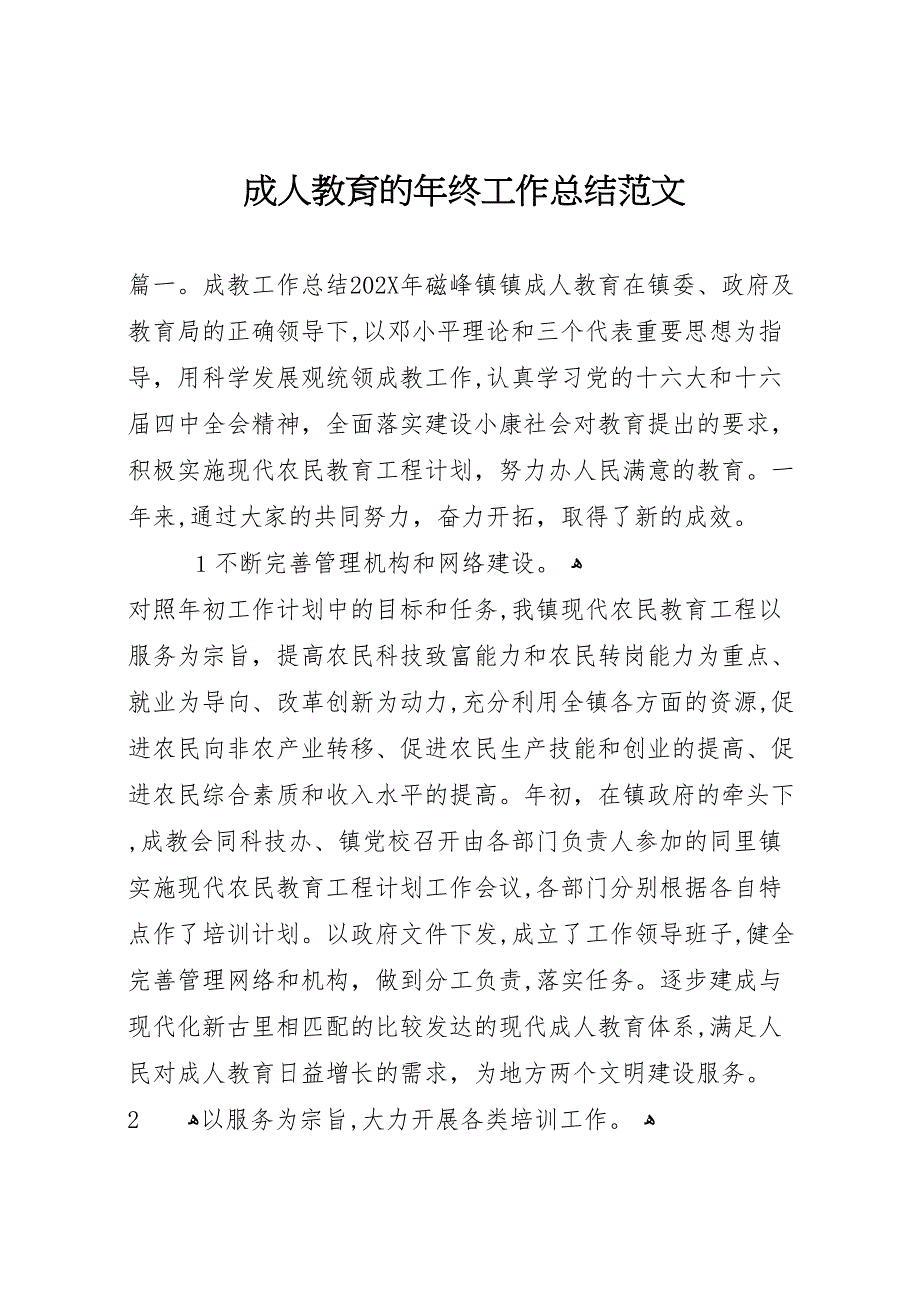 成人教育的年终工作总结范文
篇一。成教工作总结202X年磁峰镇镇成人教育在镇委、政府及
教育局的正确领导下,以邓小平理论和三个代表重要思想为指
导，用科学发展观统领成教工作,认真学习党的十六大和十六
届四中全会精神，全面落实建设小康社会对教育提出的要求，
积极实施现代农民教育工程计划，努力办人民满意的教育。一
年来,通过大家的共同努力，奋力开拓，取得了新的成效。
1 不断完善管理机构和网络建设。 ﻫ
对照年初工作计划中的目标和任务,我镇现代农民教育工程以
服务为宗旨，提高农民科技致富能力和农民转岗能力为重点、
就业为导向、改革创新为动力,充分利用全镇各方面的资源,促
进农民向非农产业转移、促进农民生产技能和创业的提高、促
进农民综合素质和收入水平的提高。年初，在镇政府的牵头下
,成教会同科技办、镇党校召开由各部门负责人参加的同里镇
实施现代农民教育工程计划工作会议,各部门分别根据各自特
点作了培训计划。以政府文件下发,成立了工作领导班子,健全
完善管理网络和机构，做到分工负责,落实任务。逐步建成与
现代化新古里相匹配的比较发达的现代成人教育体系,满足人
民对成人教育日益增长的需求，为地方两个文明建设服务。
2 ﻫ以服务为宗旨,大力开展各类培训工作。 ﻫ